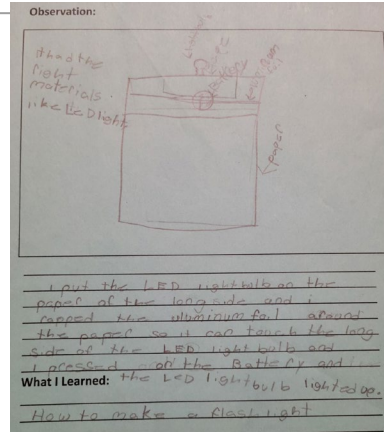 Observation:
it had the
right
materials.
like LED lights
tape
Battery
paper
I put the LED lightbulb on the
paper of the long side and i
rapped the aluminum foil around
the paper so it can touch the long
side of the LED light bulb and
I pressed on the Battery and
What I Learned: the LED lightbulb lighted up.
How to make a flash light